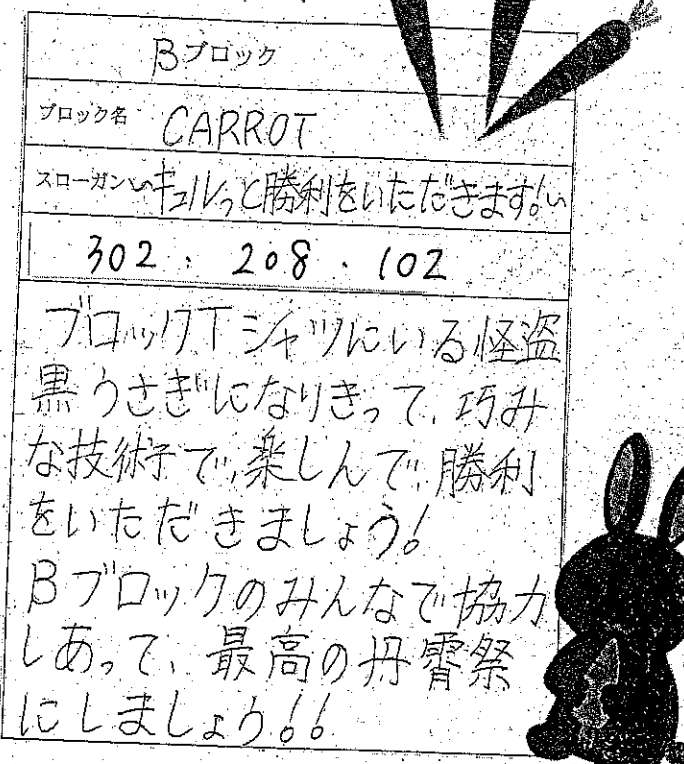 Bブロック
ブロック名 CARROT
スローガン 〝キュルっと勝利をいただきます!〟
302 . 208 . 102
ブロックTシャツにいる怪盗
黒うさぎになりきって、巧み
な技術で、楽しんで、勝利
をいただきましょう!
Bブロックのみんなで協力
しあって、最高の丹霄祭
にしましょう!!